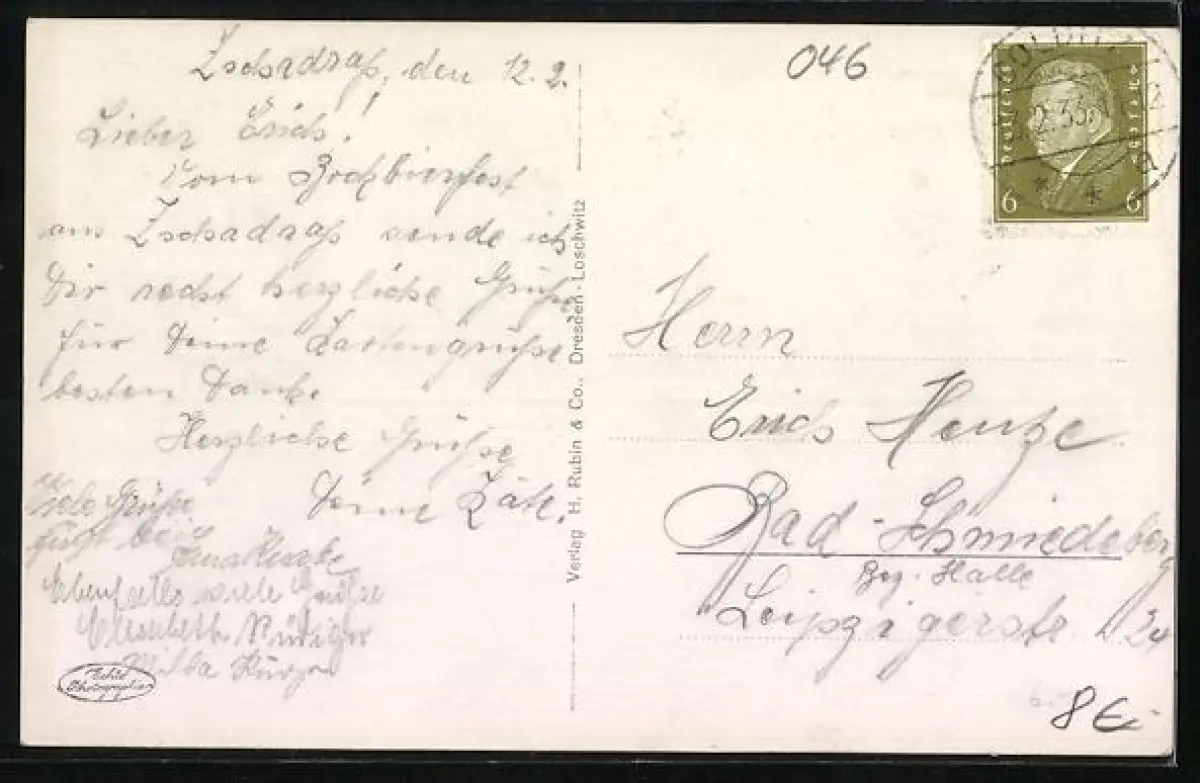 Zschadraß, den 12.2.
Lieber Erich!
Vom Bockbierfest
aus Zschadraß sende ich
Dir recht herzliche Grüße
für Deine Kartengrüße
besten Dank.
Herzliche Grüße
Deine Käte.
Viele Grüße
fügt bei
Ebenfalls viele Grüße
Elisabeth Rüdiger
Milda
Echte
Photographie
Verlag H. Rubin & Co., Dresden-Loschwitz
046
COLDITZ
2.33
a
Deutsches Reich
6 6
Herrn
Erich Henze
Bad-Schmiedeberg
Bez. Halle
Leipzigerstr. 24
8 €